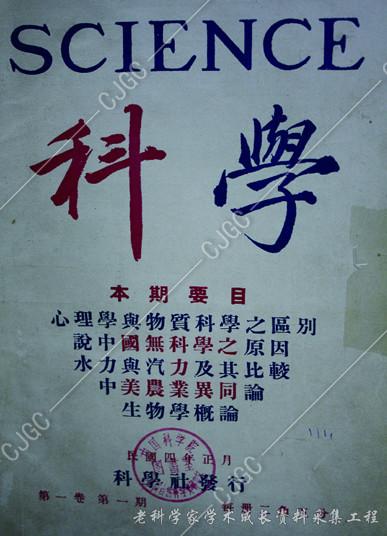 SCIENCE
科學
本期要目
心理學與物質科學之區別
說中國無科學之原因
水力與汽力及其比較
中美農業異同論
生物學概論
民國四年正月
科學社發行
第一卷第一期
老科学家学术成长资料采集工程
CJGC
CJGC
CJGC
CJGC
CJGC